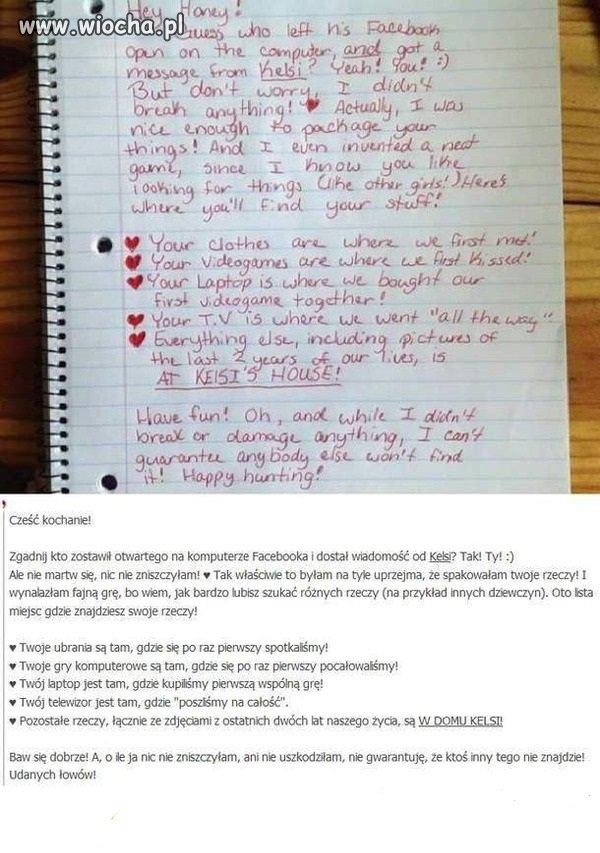 Hey Honey!
www.wiocha.pl
Guess who left his Facebook
open on the computer, and got a
message from Kelsi? Yeah! You! :)
But don't worry, I didn't
break anything! ♥ Actually, I was
nice enough to package your
things! And I even invented a neat
game, since I know you like
looking for things (like other girls!) Here's
where you'll find your stuff!
♥ Your clothes are where we first met!
♥ Your videogames are where we first kissed!
♥ Your Laptop is where we bought our
first videogame together!
♥ Your T.V is where we went "all the way"!
♥ Everything else, including pictures of
the last 2 years of our lives, is
AT KELSI'S HOUSE!
Have fun! Oh, and while I didn't
break or damage anything, I can't
guarantee anybody else won't find
it! Happy hunting!
Cześć kochanie!
Zgadnij kto zostawił otwartego na komputerze Facebooka i dostał wiadomość od Kelsi? Tak! Ty! :)
Ale nie martw się, nic nie zniszczyłam! ♥ Tak właściwie to byłam na tyle uprzejma, że spakowałam twoje rzeczy! I
wynalazłam fajną grę, bo wiem, jak bardzo lubisz szukać różnych rzeczy (na przykład innych dziewczyn). Oto lista
miejsc gdzie znajdziesz swoje rzeczy!
♥ Twoje ubrania są tam, gdzie się po raz pierwszy spotkaliśmy!
♥ Twoje gry komputerowe są tam, gdzie się po raz pierwszy pocałowaliśmy!
♥ Twój laptop jest tam, gdzie kupiliśmy pierwszą wspólną grę!
♥ Twój telewizor jest tam, gdzie "poszliśmy na całość".
♥ Pozostałe rzeczy, łącznie ze zdjęciami z ostatnich dwóch lat naszego życia, są W DOMU KELSI!
Baw się dobrze! A, o ile ja nic nie zniszczyłam, ani nie uszkodziłam, nie gwarantuję, że ktoś inny tego nie znajdzie!
Udanych łowów!